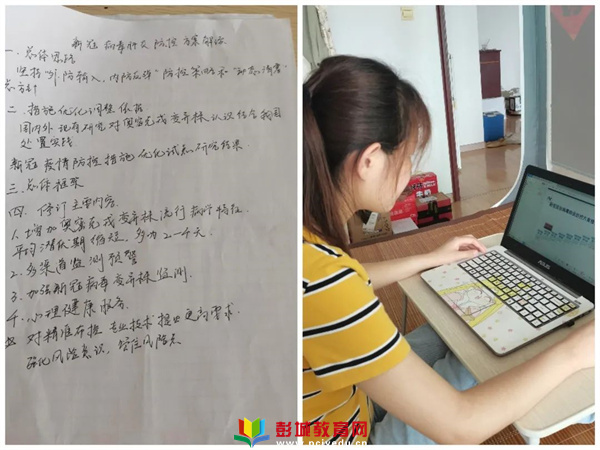 新冠病毒肺炎防控方案解读
一、总体思路
坚持"外防输入、内防反弹"防控策略和"动态清零"
总方针
二、措施优化调整依据
国内外现有研究对奥密克戎变异株认识结合我国
处置实践
新冠疫情防控措施优化试点研究结果
三、总体框架
四、修订主要内容
1.增加奥密克戎变异株流行病学特征
平均潜伏期缩短，多为2-4天
2.多渠道监测预警
3.加强新冠病毒变异株监测.
4.心理健康服务.
五 对精准布控专业技术提出更高要求
强化风险意识，
ASUS
彭城教育网
www.pcjyedu.cn